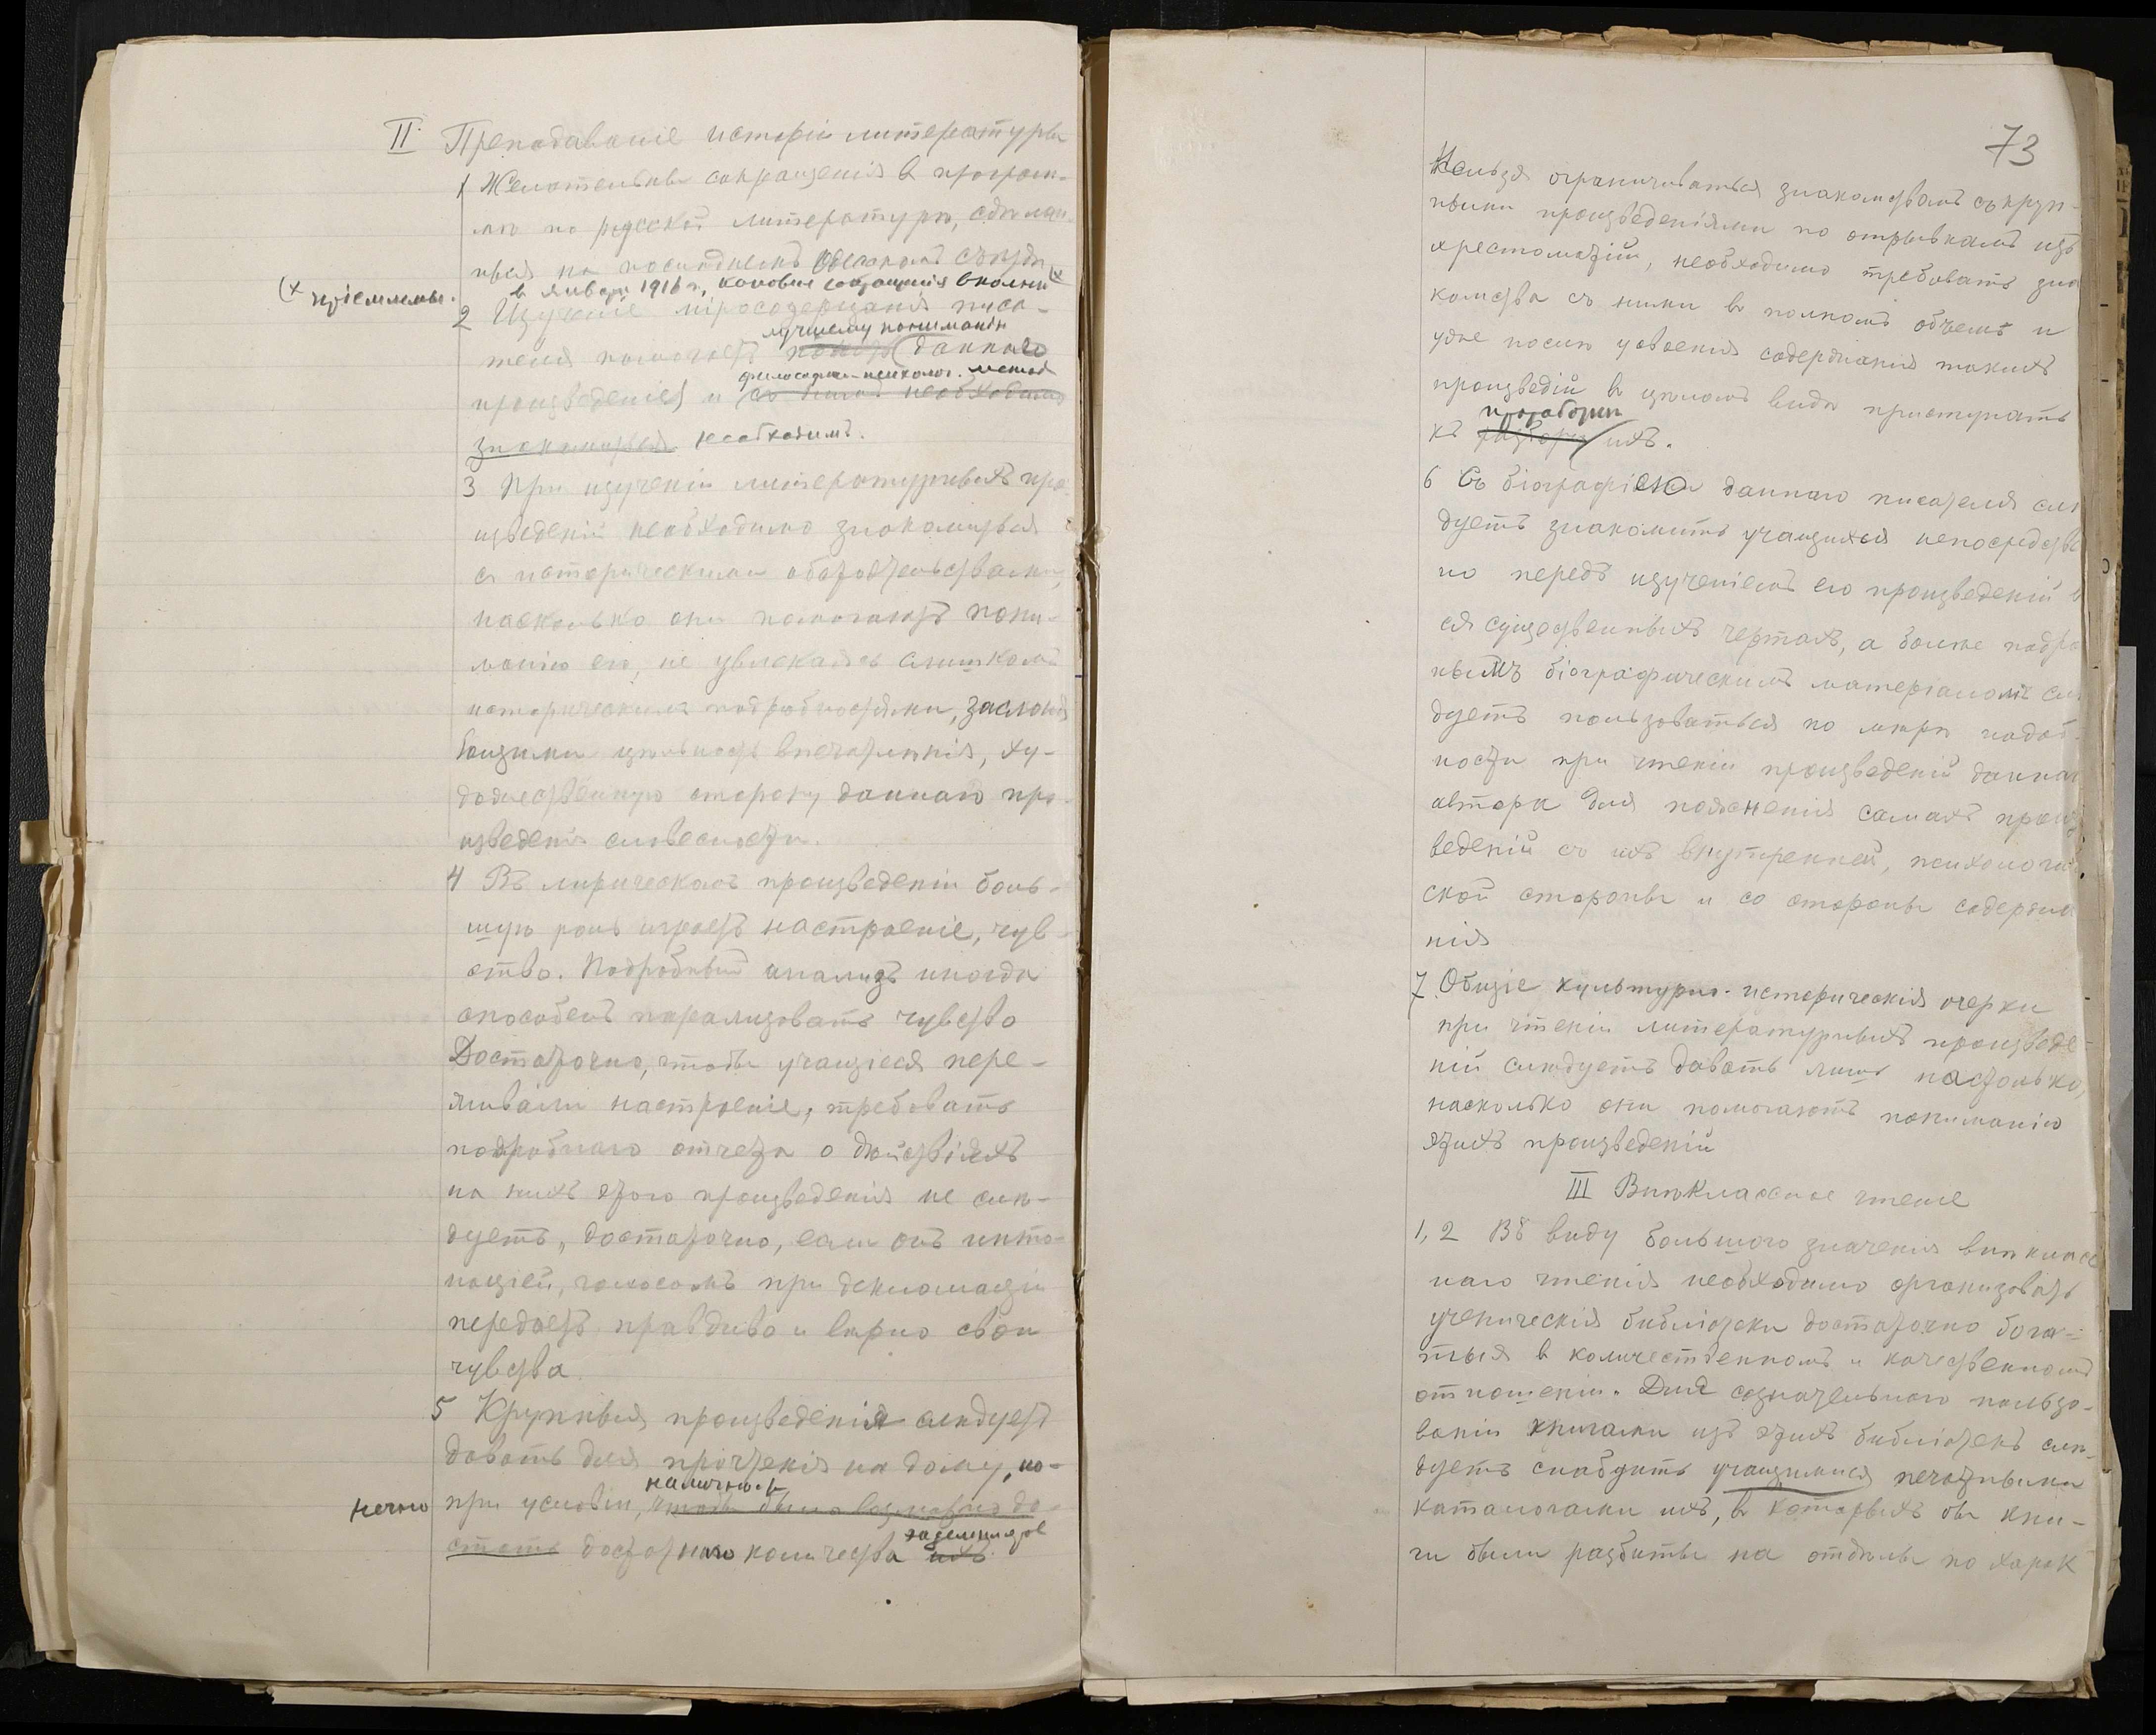 II Преподаваніе исторіи литературы
1 Желательны сокращенія в програм-
мѣ по русской литературѣ, сдѣлан-
ныя на послѣднемъ съѣздѣ (х
в январѣ 1916 г., каковыя сокращенія вполнѣ
(х пріемлемы.
2 Изученіе міросозерцанія писа-
лучшему пониманію
теля помогаетъ данного
философско-психолог. метод
произведенія) и съ ними необходимо
знакомиться необходимъ.
3 При изученіи литературныхъ про-
изведеній необходимо знакомиться
съ историческими обстоятельствами,
насколько они помогаютъ пони-
манію его, не увлекаясь слишкомъ
историческими подробностями, заслоня-
ющими цѣльность впечатлѣнія, ху-
дожественную сторону даннаго про-
изведенія словесности.
4 Въ лирическомъ произведеніи боль-
шую роль играетъ настроеніе, чув-
ство. Подробный анализъ иногда
способенъ парализовать чувство
Достаточно, чтобы учащіеся пере-
живали настроеніе, требовать
подробнаго отчета о дѣйствіяхъ
на нихъ этого произведенія не слѣ-
дуетъ, достаточно, если онъ инто-
націей, голосомъ при декламаціи
передаетъ правдиво и вѣрно свои
чувства.
5 Крупныя произведенія слѣдуетъ
давать для прочтенія на дому, но-
наличности
при условіи, чтобы было возможно до-
стать достаточнаго количества ихъ
73
Нельзя ограничиваться знакомствомъ съ круп-
ными произведеніями по отрывкамъ изъ
хрестоматій, необходимо требовать зна
комства съ ними в полномъ объемѣ и
уже послѣ усвоенія содержанія такихъ
произведій в цѣломъ видѣ приступать
проработки
къ разбору ихъ.
6 Съ біографіею даннаго писателя слѣ
дуетъ знакомить учащихся непосредстве
но передъ изученіемъ его произведеній в
ея существенныхъ чертахъ, а болѣе подро
нымъ біографическимъ матеріаломъ слѣ
дуетъ пользоваться по мѣрѣ надоб-
ности при чтеніи произведеній даннаг
автора для поясненія самихъ произ
веденій съ ихъ внутренней, психологиче
ской стороны и со стороны содержа
нія
7. Общіе культурно-историческія очерки
при чтеніи литературныхъ произведе-
ній слѣдуетъ давать лишь настолько,
насколько они помогаютъ пониманію
этихъ произведеній
III Внѣклассное чтеніе
1, 2 Въ виду большого значенія внѣкласс
наго чтенія необходимо организовать
ученическія библіотеки достаточно бога-
тыя в количественномъ и качественномъ
отношеніи. Для сознательнаго пользо-
ванія книгами изъ этихъ библіотекъ слѣ-
дуетъ снабдить учащимися печатными
каталогами ихъ, в которыхъ бы кни-
ги были разбиты на отдѣлы по харак